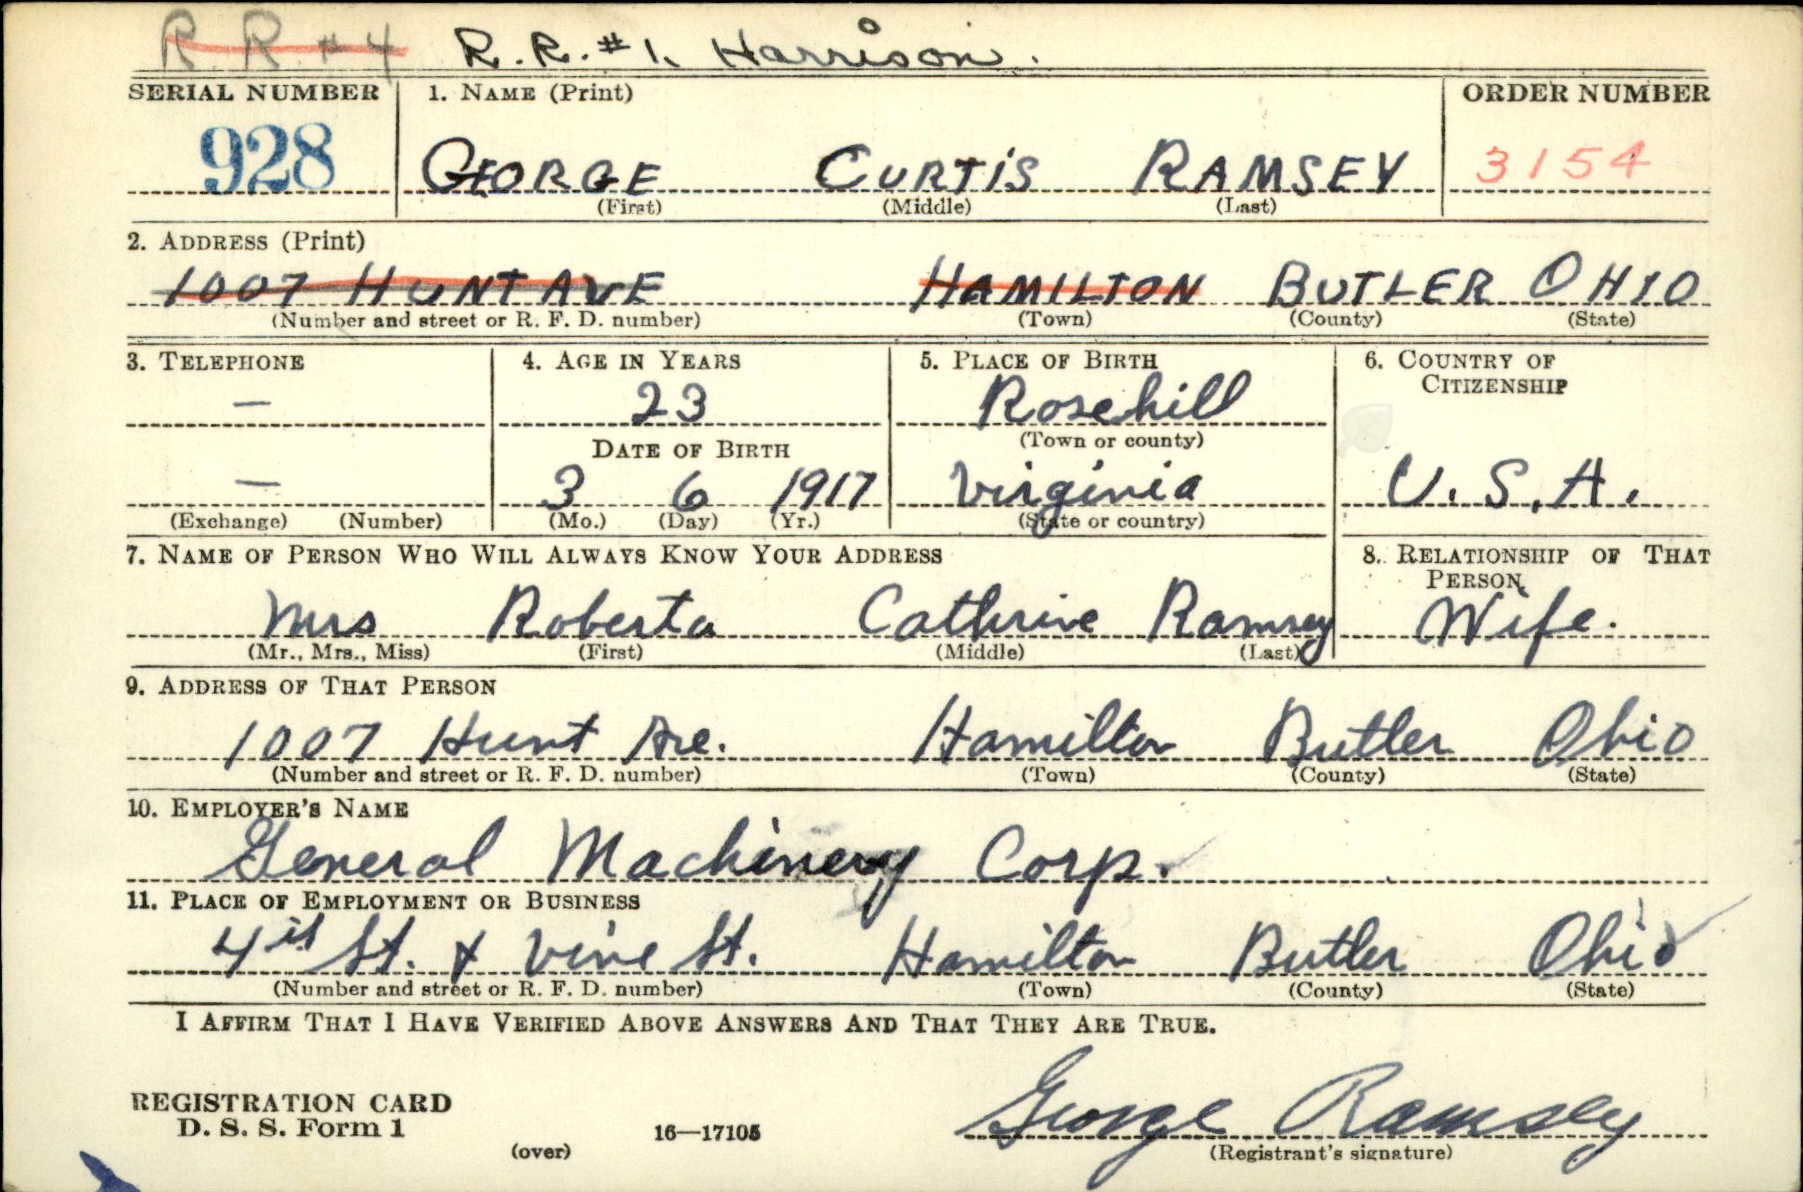 R. R. #4 R. R. #1, Harrison.
SERIAL NUMBER 1. NAME (Print) ORDER NUMBER
928 GEORGE CURTIS RAMSEY 3154
(First) (Middle) (Last)
2. ADDRESS (Print)
1007 HUNT AVE HAMILTON BUTLER OHIO
(Number and street or R. F. D. number) (Town) (County) (State)
3. TELEPHONE 4. AGE IN YEARS 5. PLACE OF BIRTH 6. COUNTRY OF
CITIZENSHIP
— 23 Rosehill
DATE OF BIRTH (Town or county)
— 3 6 1917 Virginia U. S. A.
(Exchange) (Number) (Mo.) (Day) (Yr.) (State or country)
7. NAME OF PERSON WHO WILL ALWAYS KNOW YOUR ADDRESS 8. RELATIONSHIP OF THAT
PERSON
Mrs Roberta Cathrine Ramsey Wife.
(Mr., Mrs., Miss) (First) (Middle) (Last)
9. ADDRESS OF THAT PERSON
1007 Hunt Ave. Hamilton Butler Ohio
(Number and street or R. F. D. number) (Town) (County) (State)
10. EMPLOYER'S NAME
General Machinery Corp.
11. PLACE OF EMPLOYMENT OR BUSINESS
St. & Vine St. Hamilton Butler Ohio
(Number and street or R. F. D. number) (Town) (County) (State)
I AFFIRM THAT I HAVE VERIFIED ABOVE ANSWERS AND THAT THEY ARE TRUE.
George Ramsey
REGISTRATION CARD
D. S. S. Form 1 16—17105
(over) (Registrant's signature)